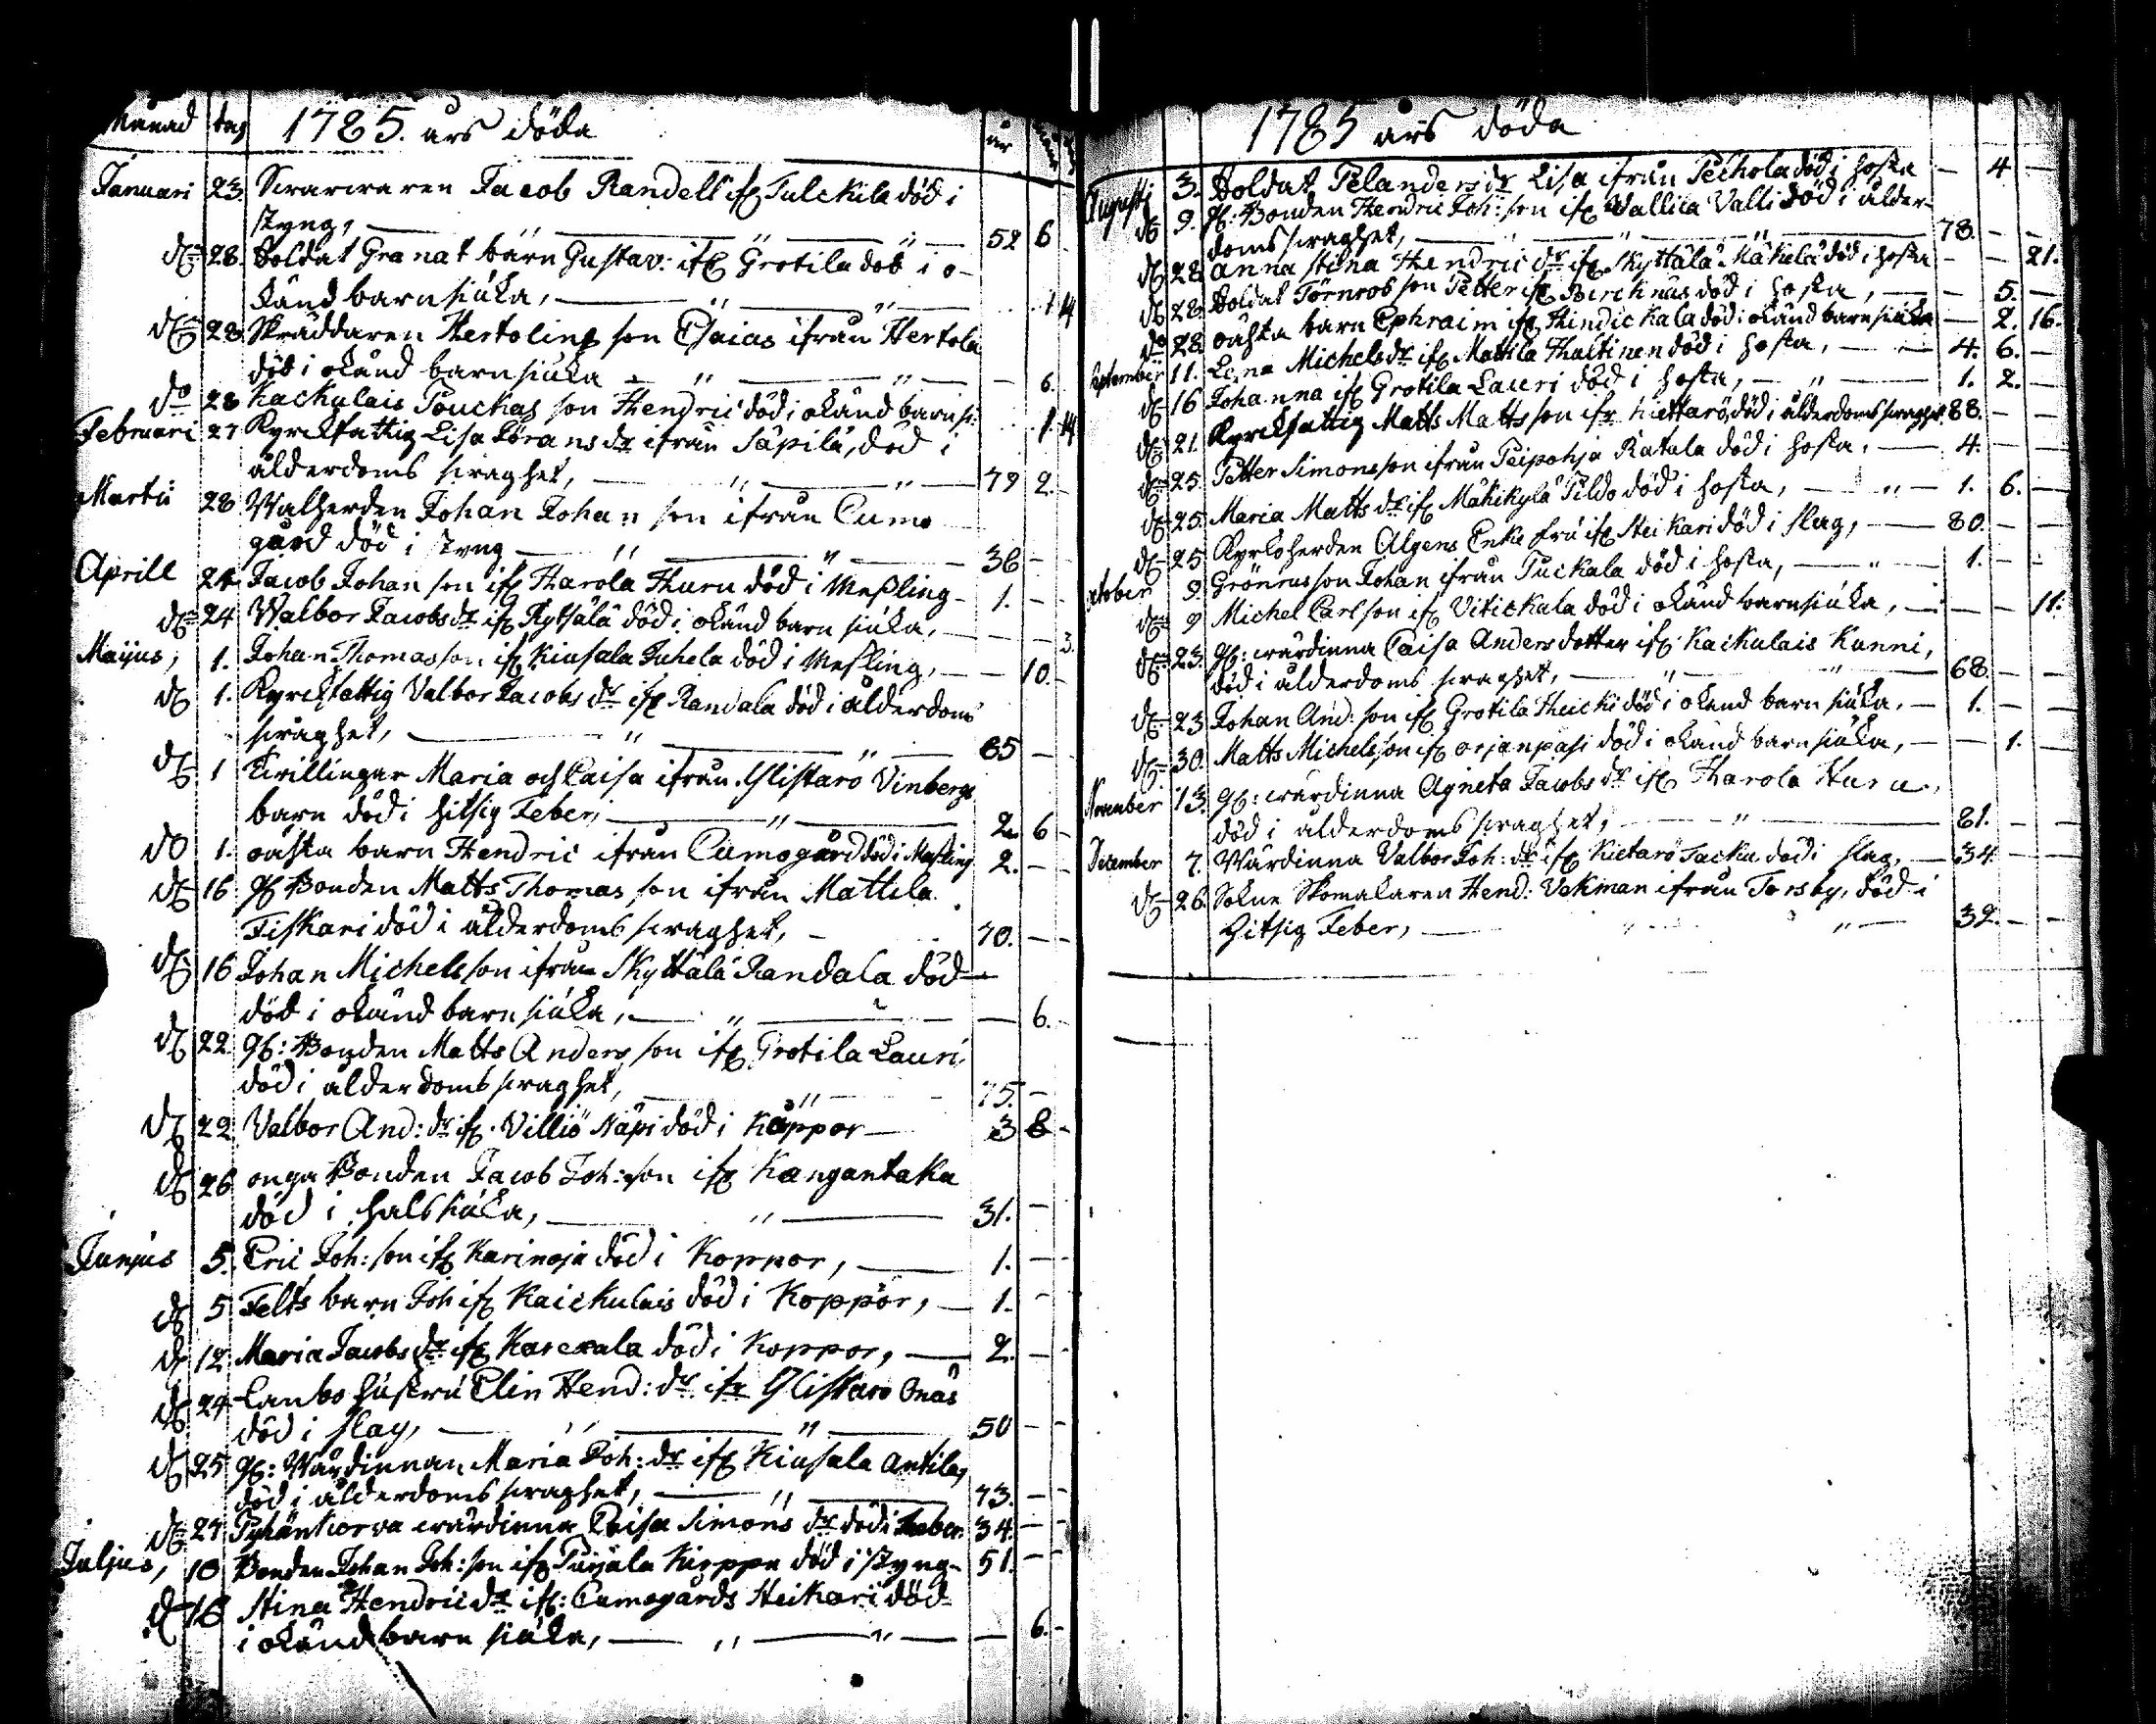 Månad dag 1785. års döda år
Januari 23. Swarwaren Jacob Randell ifr Tulckila död i
styng, 52 6
do 28. Soldat Granat barn Gustav: ifr Grotila död i o-
känd barnsiuka, 1 14
do 28 Skräddaren Hertoling son Esaias ifrån Hertola
död i okänd barnsiuka 6.
do 28 Kackulais Pouckas son Hendric död i okänd barnsi: 1 14
Februari 27 Kyrckfattig Lisa Görans dr ifrån Säpilä, död i
ålderdoms swaghet, 79 2.
Martii 28 Walherden Johan Johan son ifrån Cumo
gård död i styng 36
Aprill 24 Jacob Johan son ifr Harola Huru död i Messling 1.
do 24 Walbor Jacobs dr ifr Kyttälä död i okänd barn siuka, 3.
Maijus, 1. Johan Thomas son ifr Kiusala Juhela död i Messling, 10.
do 1. Kyrckfattig Valbor Jacobs dr ifr Randala död i ålderdoms
swaghet, 85
do 1 Tvillingar Maria och Caisa ifrån Glistarö Vinbergs
barn död i hitsig Feber, 2. 6
do 1. oähta barn Hendric ifrån Cumogård död i Messling 2.
do 16 gl Bonden Matts Thomas son ifrån Mattila
Fiskari död i ålderdoms swaghet, 70.
do 16 Johan Michels son ifrån Skyttälä Randala död
död i okänd barnsiuka, 6.
do 22 gl: Bonden Matts Anders son ifr Grotila Lauri
död i ålderdoms swaghet, 75.
do 22 Valbor And: dr ifr Villiö Näpi död i Koppor 3 8
do 26 onga Bonden Jacob Joh: son ifr Kangantaka
död i halssiuka, 31.
Junius 5. Eric Joh: son ifr Karinoja död i Koppor, 1.
do 5 Felts barn Joh ifr Kaickulais död i Koppor, 1.
do 12 Maria Jacobs dr ifr Karckala död i Koppor, 2.
do 24 Lanbo hustru Elin Hend: dr ifr Glistarö Onas
död i slag, 50
do 25 gl: Wärdinnan Maria Joh: dr ifr Kiusala Antila,
död i ålderdoms swaghet, 73.
do 27 Pyhänkorva wärdinna Caisa Simons dr död i Feber. 34.
Julius, 10 Bonden Johan Joh: son ifr Purjala Kirppu död i styng 51.
do 16 Stina Hendric dr ifr: Cumogårds Heikari död
i okänd barn siuka, 6.
1785 års döda
Augusti 3. Soldat Pelanders dr Lisa ifrån Pechola död i hosta 4
do 9. gl: Bonden Hendric Joh: son ifr Wallila Valli död i ålder-
doms swaghet, 78.
do 28 Anna Stina Hendric dr ifr Skyttälä Mäkelä död i hosta 21.
do 28. Soldat Törnros son Petter ifr Bircknäs död i hosta, 5.
do 28. oähta barn Ephraim ifr Hindickala död i okänd barnsiuka 2. 16.
September 11. Lena Michels dr ifr Mattila Thultinen död i hosta, 4. 6.
do 16 Johanna ifr Grotila Lauri död i hosta, 1. 2.
do 21. Kyrckfattig Matts Matts son ifr Kiettarö, död i ålderdoms swaghet 88.
do 25. Petter Simons son ifrån Peipohja Ratala död i hosta, 4.
do 25. Maria Matts dr ifr Mähikylä Pildo död i hosta, 1. 6.
do 25 Kyrkoherden Algens Enke fru ifr Steikari död i slag, 80.
October 9. Grönrus son Johan ifrån Tuckala död i hosta, 1.
do 9 Michel Carl son ifr Vitickala död i okänd barnsiuka, 11.
do 23. gl: wärdinna Caisa Anders dotter ifr Kackulais Kunni,
död i ålderdoms swaghet, 68.
do 23 Johan And: son ifr Grotila Heicki död i okänd barn siuka, 1.
do 30. Matts Michels son ifr orjanpasi död i okänd barnsiuka, 1.
November 13. gl: wärdinna Agneta Jacobs dr ifr Harola Huru,
död i ålderdoms swaghet, 81.
December 7. Wärdinna Valbor Joh: dr ifr Kietarö Jacku död i slag, 34
do 26. Sokne Skomakaren Hend: Vekman ifrån Torsby, död i
hitsig Feber, 32.